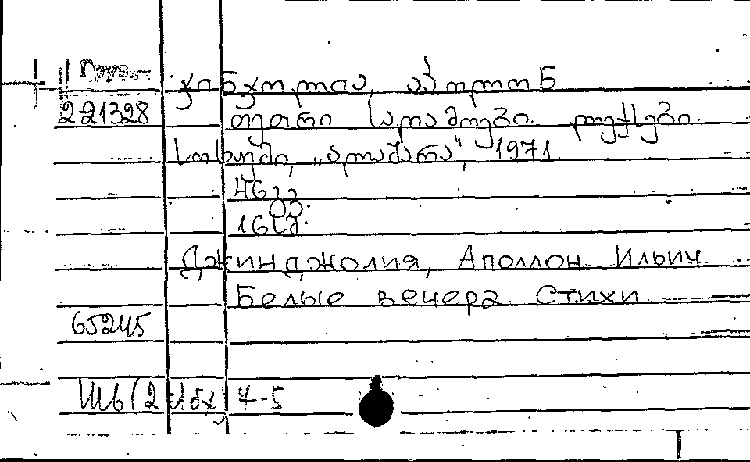 Груз.
221328
თეთრი საღამოები. ლექსები.
სოხუმი, „ალაშარა", 1971.
46 გვ.
16 კ.
Джинджолия, Аполлон Ильич
Белые вечера. Стихи
65245
4-5